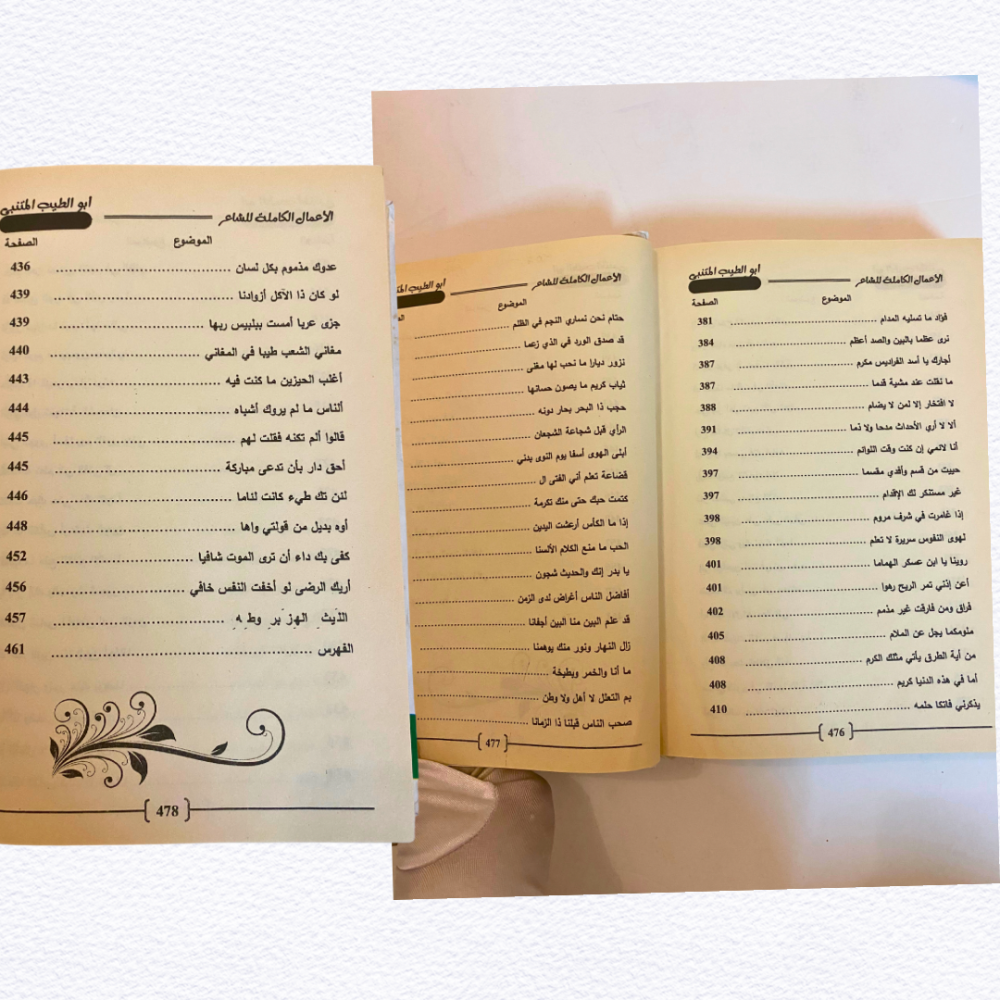 الأعمال الكاملة للشاعر أبو الطيب المتنبي
الموضوع الصفحة
فؤاد ما تسليه المدام 381
نرى عظما بالبين والصد أعظم 384
أجارك يا أسد الفراديس مكرم 387
ما نقلت عند مشية قدما 387
لا افتخار إلا لمن لا يضام 388
ألا لا أري الأحداث مدحا ولا ذما 391
أنا لائمي إن كنت وقت اللوائم 394
حييت من قسم وأفدي مقسما 397
غير مستنكر لك الإقدام 397
إذا غامرت في شرف مروم 398
لهوى النفوس سريرة لا تعلم 398
روينا يا ابن عسكر الهماما 401
أعن إذني تمر الريح رهوا 401
فراق ومن فارقت غير مذمم 402
ملومكما يجل عن الملام 405
من أية الطرق يأتي مثلك الكرم 408
أما في هذه الدنيا كريم 408
يذكرني فاتكا حلمه 410
476
الأعمال الكاملة للشاعر أبو الطيب
الموضوع
حتام نحن نساري النجم في الظلم
قد صدق الورد في الذي زعما
نزور ديارا ما نحب لها مغنى
ثياب كريم ما يصون حسانها
حجب ذا البحر بحار دونه
الرأي قبل شجاعة الشجعان
أبلى الهوى أسفا يوم النوى بدني
قضاعة تعلم أني الفتى ال
كتمت حبك حتى منك تكرمة
إذا ما الكأس أرعشت اليدين
الحب ما منع الكلام الألسنا
يا بدر إنك والحديث شجون
أفاضل الناس أغراض لدى الزمن
قد علم البين منا البين أجفانا
زال النهار ونور منك يوهمنا
ما أنا والخمر وبطيخة
بم التعلل لا أهل ولا وطن
صحب الناس قبلنا ذا الزمانا
477
الأعمال الكاملة للشاعر أبو الطيب المتنبي
الموضوع الصفحة
عدوك مذموم بكل لسان 436
لو كان ذا الآكل أزوادنا 439
جزى عربا أمست ببلبيس ربها 439
مغاني الشعب طيبا في المغاني 440
أغلب الحيزين ما كنت فيه 443
ألناس ما لم يروك أشباه 444
قالوا ألم تكنه فقلت لهم 445
أحق دار بأن تدعى مباركة 445
لئن تك طيء كانت لئاما 446
أوه بديل من قولتي واها 448
كفى بك داء أن ترى الموت شافيا 452
أريك الرضى لو أخفت النفس خافي 456
457
الفهرس 461
478